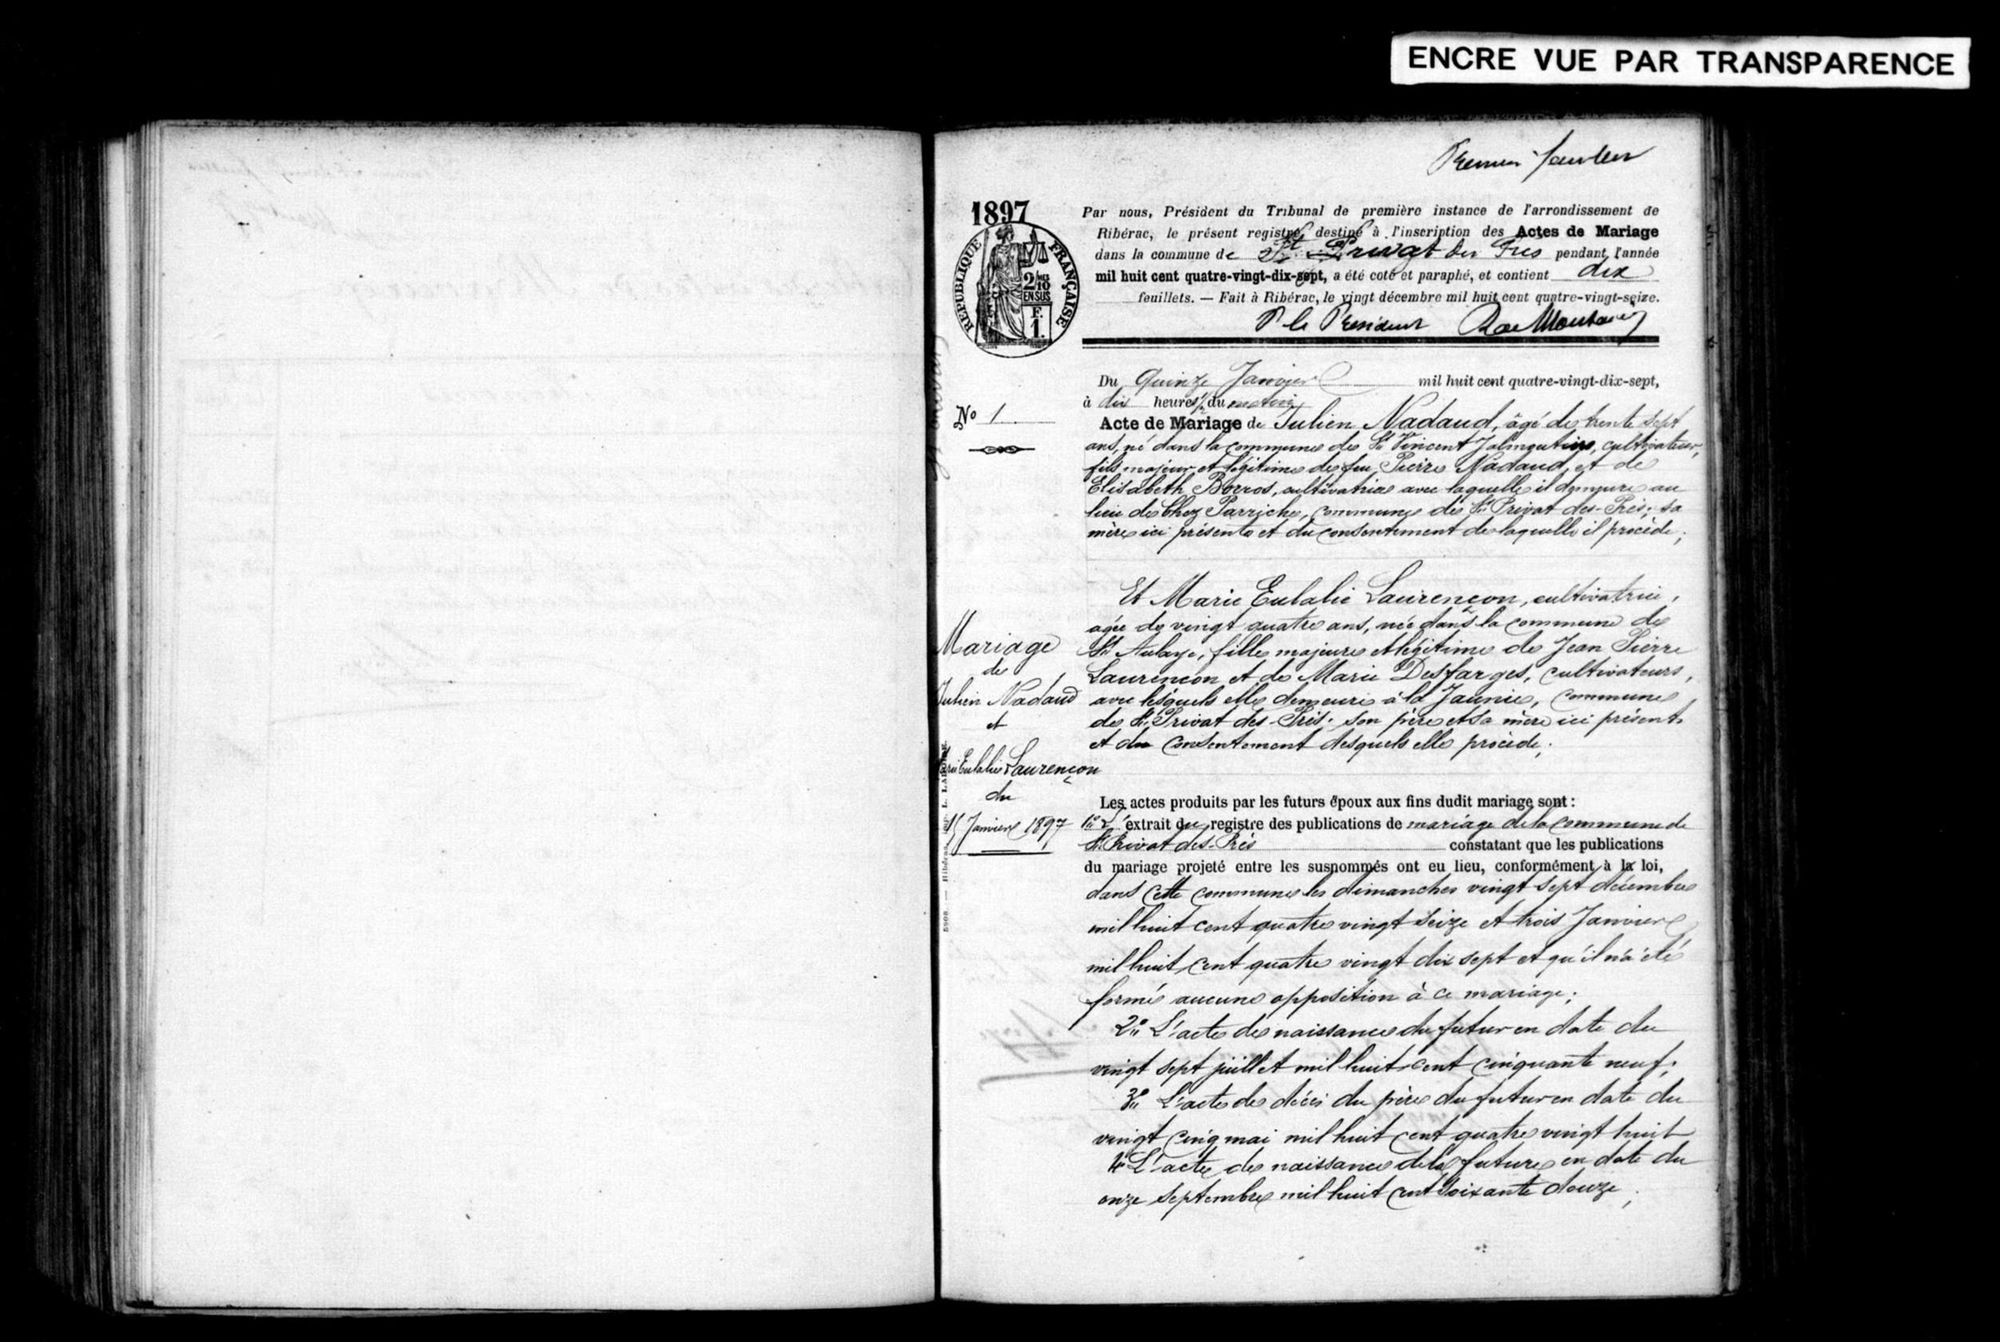 ENCRE VUE PAR TRANSPARENCE
Premier
1897
RÉPUBLIQUE FRANÇAISE
2/10
EN SUS
F.
1.
Par nous, Président du Tribunal de première instance de l'arrondissement de
Ribérac, le présent registre, destiné à l'inscription des Actes de Mariage
dans la commune de St Privat des Prés pendant l'année
mil huit cent quatre-vingt-dix-sept, a été coté et paraphé, et contient dix
feuillets. — Fait à Ribérac, le vingt décembre mil huit cent quatre-vingt-seize.
P le Président
Du Quinze Janvier mil huit cent quatre-vingt-dix-sept,
à dix heures du matin
No 1
Acte de Mariage de Julien Nadaud, âgé de trente sept
ans, né dans la commune de St Vincent Jalmoutiers, cultivateur,
fils majeur et légitime de feu Pierre Nadaud, et de
Elisabeth Borros, cultivatrice avec laquelle il demeure au
lieu de Chez Parriche, commune de St Privat des-Prés; sa
mère ici présente et du consentement de laquelle il procède;
Et Marie Eulalie Laurençon, cultivatrice,
agée de vingt quatre ans, née dans la commune de
St Aulaye, fille majeure et légitime de Jean Pierre
Laurençon et de Marie Desfarges, cultivateurs,
avec lesquels elle demeure à la Jaunie, commune
de St Privat des-Prés; son père et sa mère ici présents
et du consentement desquels elle procède;
Mariage
de
Julien Nadaud
et
Marie Eulalie Laurençon
du
15 Janvier 1897
Les actes produits par les futurs époux aux fins dudit mariage sont :
1° L'extrait du registre des publications de mariage de la commune de
St Privat des-Prés constatant que les publications
du mariage projeté entre les susnommés ont eu lieu, conformément à la loi,
dans cette commune les dimanches vingt sept décembre
mil huit cent quatre vingt seize et trois Janvier
mil huit cent quatre vingt dix sept et qu'il n'a été
formé aucune opposition à ce mariage;
2° L'acte de naissance du futur en date du
vingt sept juillet mil huit cent cinquante neuf;
3° L'acte de décès du père du futur en date du
vingt cinq mai mil huit cent quatre vingt huit
4° L'acte de naissance de la future en date du
onze septembre mil huit cent soixante douze;